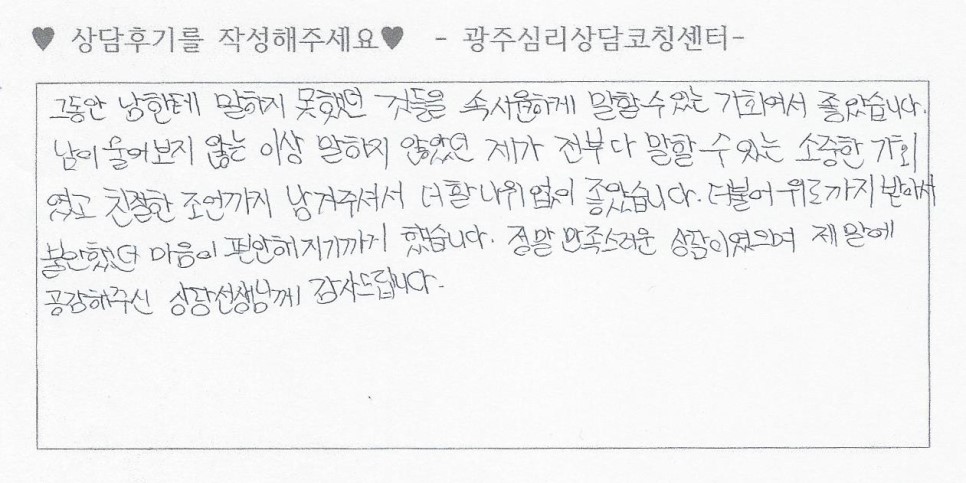 ♥ 상담후기를 작성해주세요♥ - 광주심리상담코칭센터-
그동안 남한테 말하지 못했던 것들을 속시원하게 말할 수 있는 기회여서 좋았습니다.
남이 울어보지 않는 이상 말하지 않았던 제가 전부 다 말할 수 있는 소중한 기회
였고 친절한 조언까지 남겨주셔서 더할 나위 없이 좋았습니다. 더불어 위로까지 받아서
불안했던 마음이 편안해지기까지 했습니다. 정말 만족스러운 상담이었으며 제 말에
공감해주신 상담선생님께 감사드립니다.